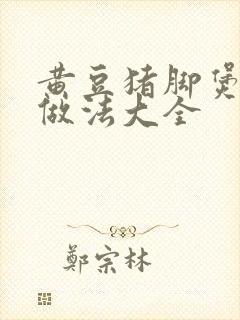 黄豆猪脚煲
做法大全
鄭宗林